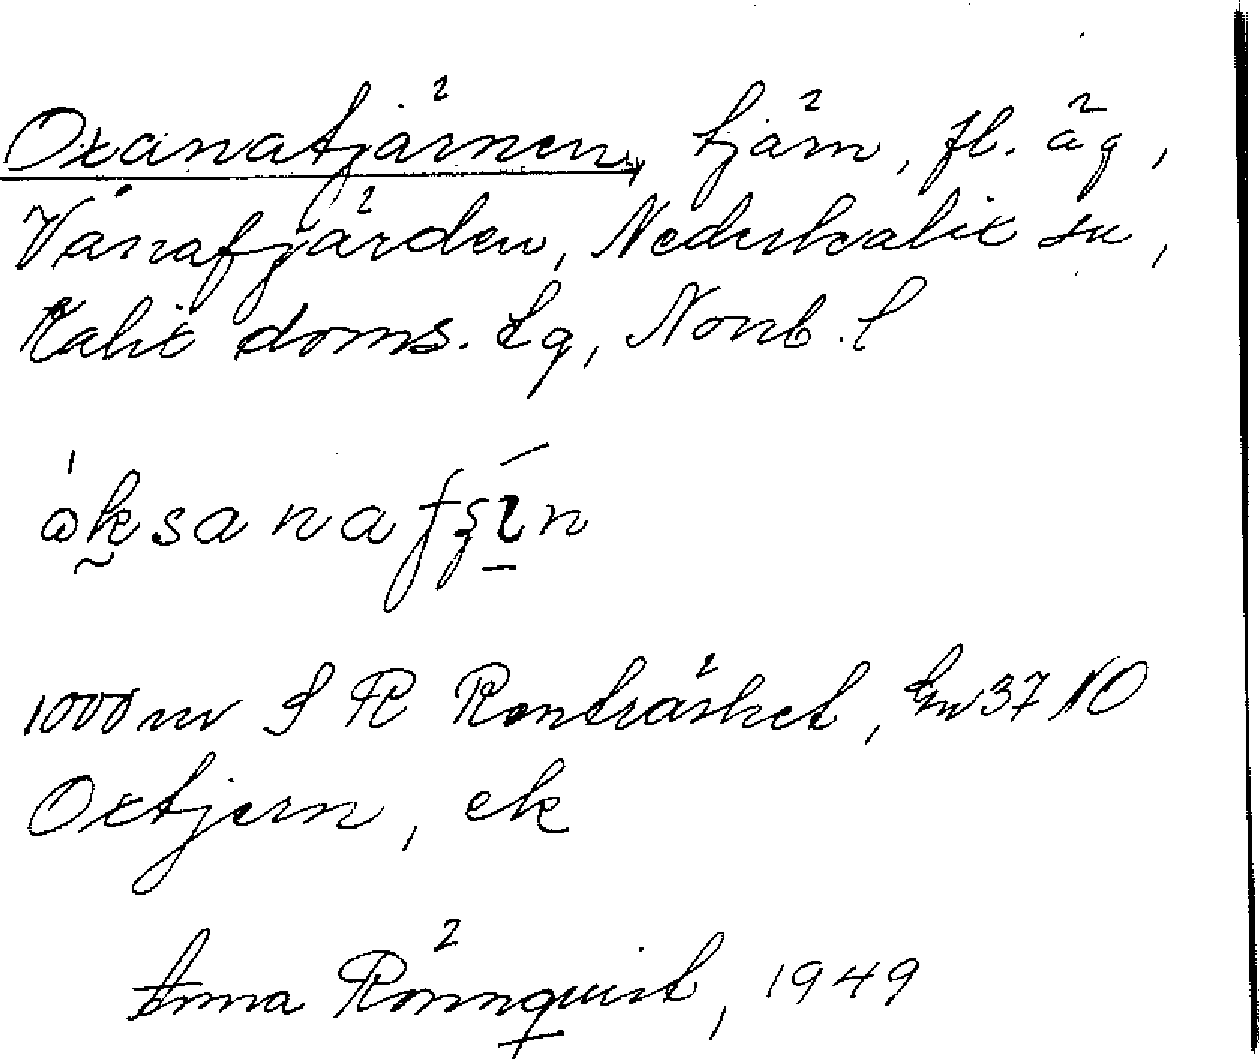 Oxanatjärnen, tjärn, fl. äg,
Vånafjärden, Nederkalix sn,
Kalix doms. lg, Norrb. l
1000 m S R Renträsket, 37 NO
Oxtjern, ek
Anna Rönnquist, 1949